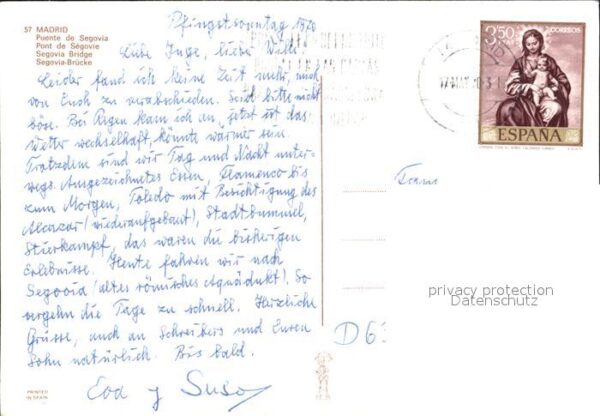 57 MADRID
Puente de Segovia
Pont de Ségovie
Segovia Bridge
Segovia-Brücke
Pfingstsonntag 1970
Liebe Inge, lieber Willi!
Leider fand ich keine Zeit mehr, mich
von Euch zu verabschieden. Seid bitte nicht
böse. Bei Regen kam ich an, jetzt ist das
Wetter wechselhaft, könnte wärmer sein.
Trotzdem sind wir Tag und Nacht unter-
wegs. Ausgezeichnetes Essen, Flamenco bis
zum Morgen, Toledo mit Besichtigung des
Alcazar (wiederaufgebaut), Stadtbummel,
Stierkampf, das waren die bisherigen
Erlebnisse. Heute fahren wir nach
Segovia (altes römisches Aquädukt). So
vergehn die Tage zu schnell. Herzliche
Grüsse, auch an Schreibers und Euren
Sohn natürlich. Bis bald.
Eva y Suso
PRINTED
IN SPAIN
3,50
PTAS
CORREOS
ESPAÑA
privacy protection
Datenschutz
D 63